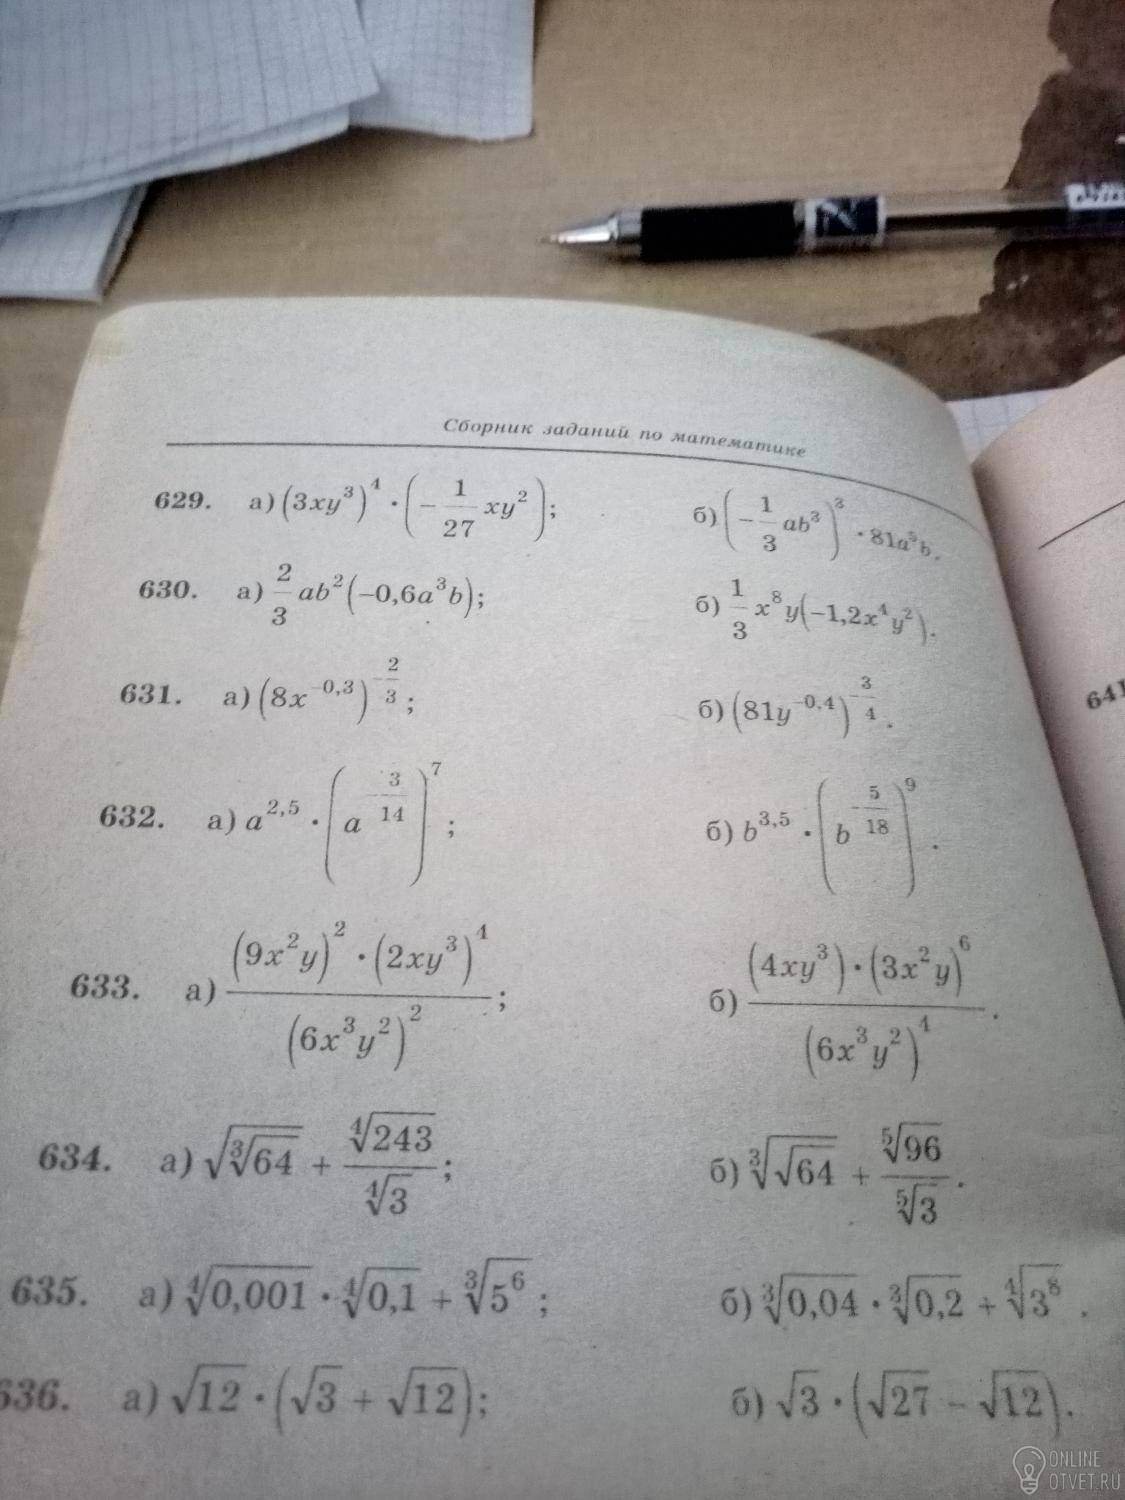 Сборник заданий по математике
629. а) (3xy³)⁴ · (−1/27 xy²); б) (−1/3 ab³)³ · 81a⁵b.
630. а) 2/3 ab²(−0,6a³b); б) 1/3 x⁸y(−1,2x⁴y²).
631. а) (8x^(−0,3))^(−2/3); б) (81y^(−0,4))^(−3/4).
641
632. а) a^(2,5) · (a^(−3/14))⁷; б) b^(3,5) · (b^(−5/18))⁹.
633. а) (9x²y)² · (2xy³)⁴ / (6x³y²)²; б) (4xy³) · (3x²y)⁶ / (6x³y²)⁴.
634. а) √(∛64) + ⁴√243 / ⁴√3; б) ∛(√64) + ⁵√96 / ⁵√3.
635. а) ⁴√0,001 · ⁴√0,1 + ∛(5⁶); б) ∛0,04 · ∛0,2 + ⁴√(3⁸).
636. а) √12 · (√3 + √12); б) √3 · (√27 − √12).
ONLINE
OTVET.RU